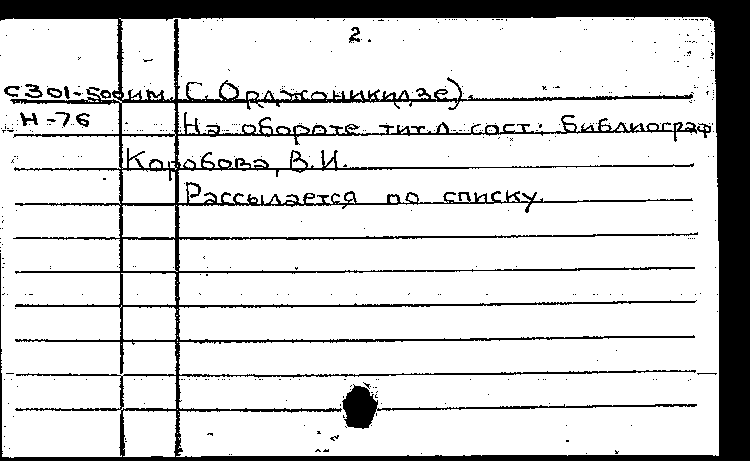 2.
С301-500 им. С. Орджоникидзе).
Н-76 На обороте тит. л сост: библиограф
Коробова, В.И.
Рассылается по списку.